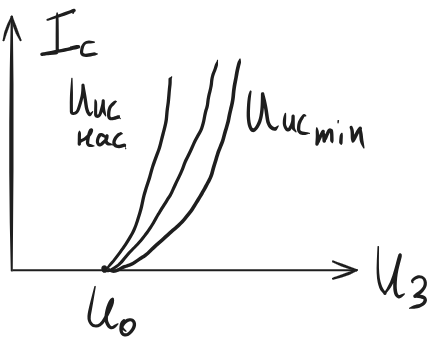 Iс
Uис
нас
Uис min
Uз
Uо